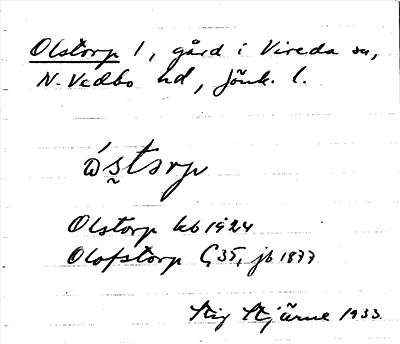 Olstorp 1, gård i Vireda sn,
N. Vedbo hd, Jönk. l.
Olstorp kb 1924
Olofstorp G35, jb 1877
Stig Stjärne 1933